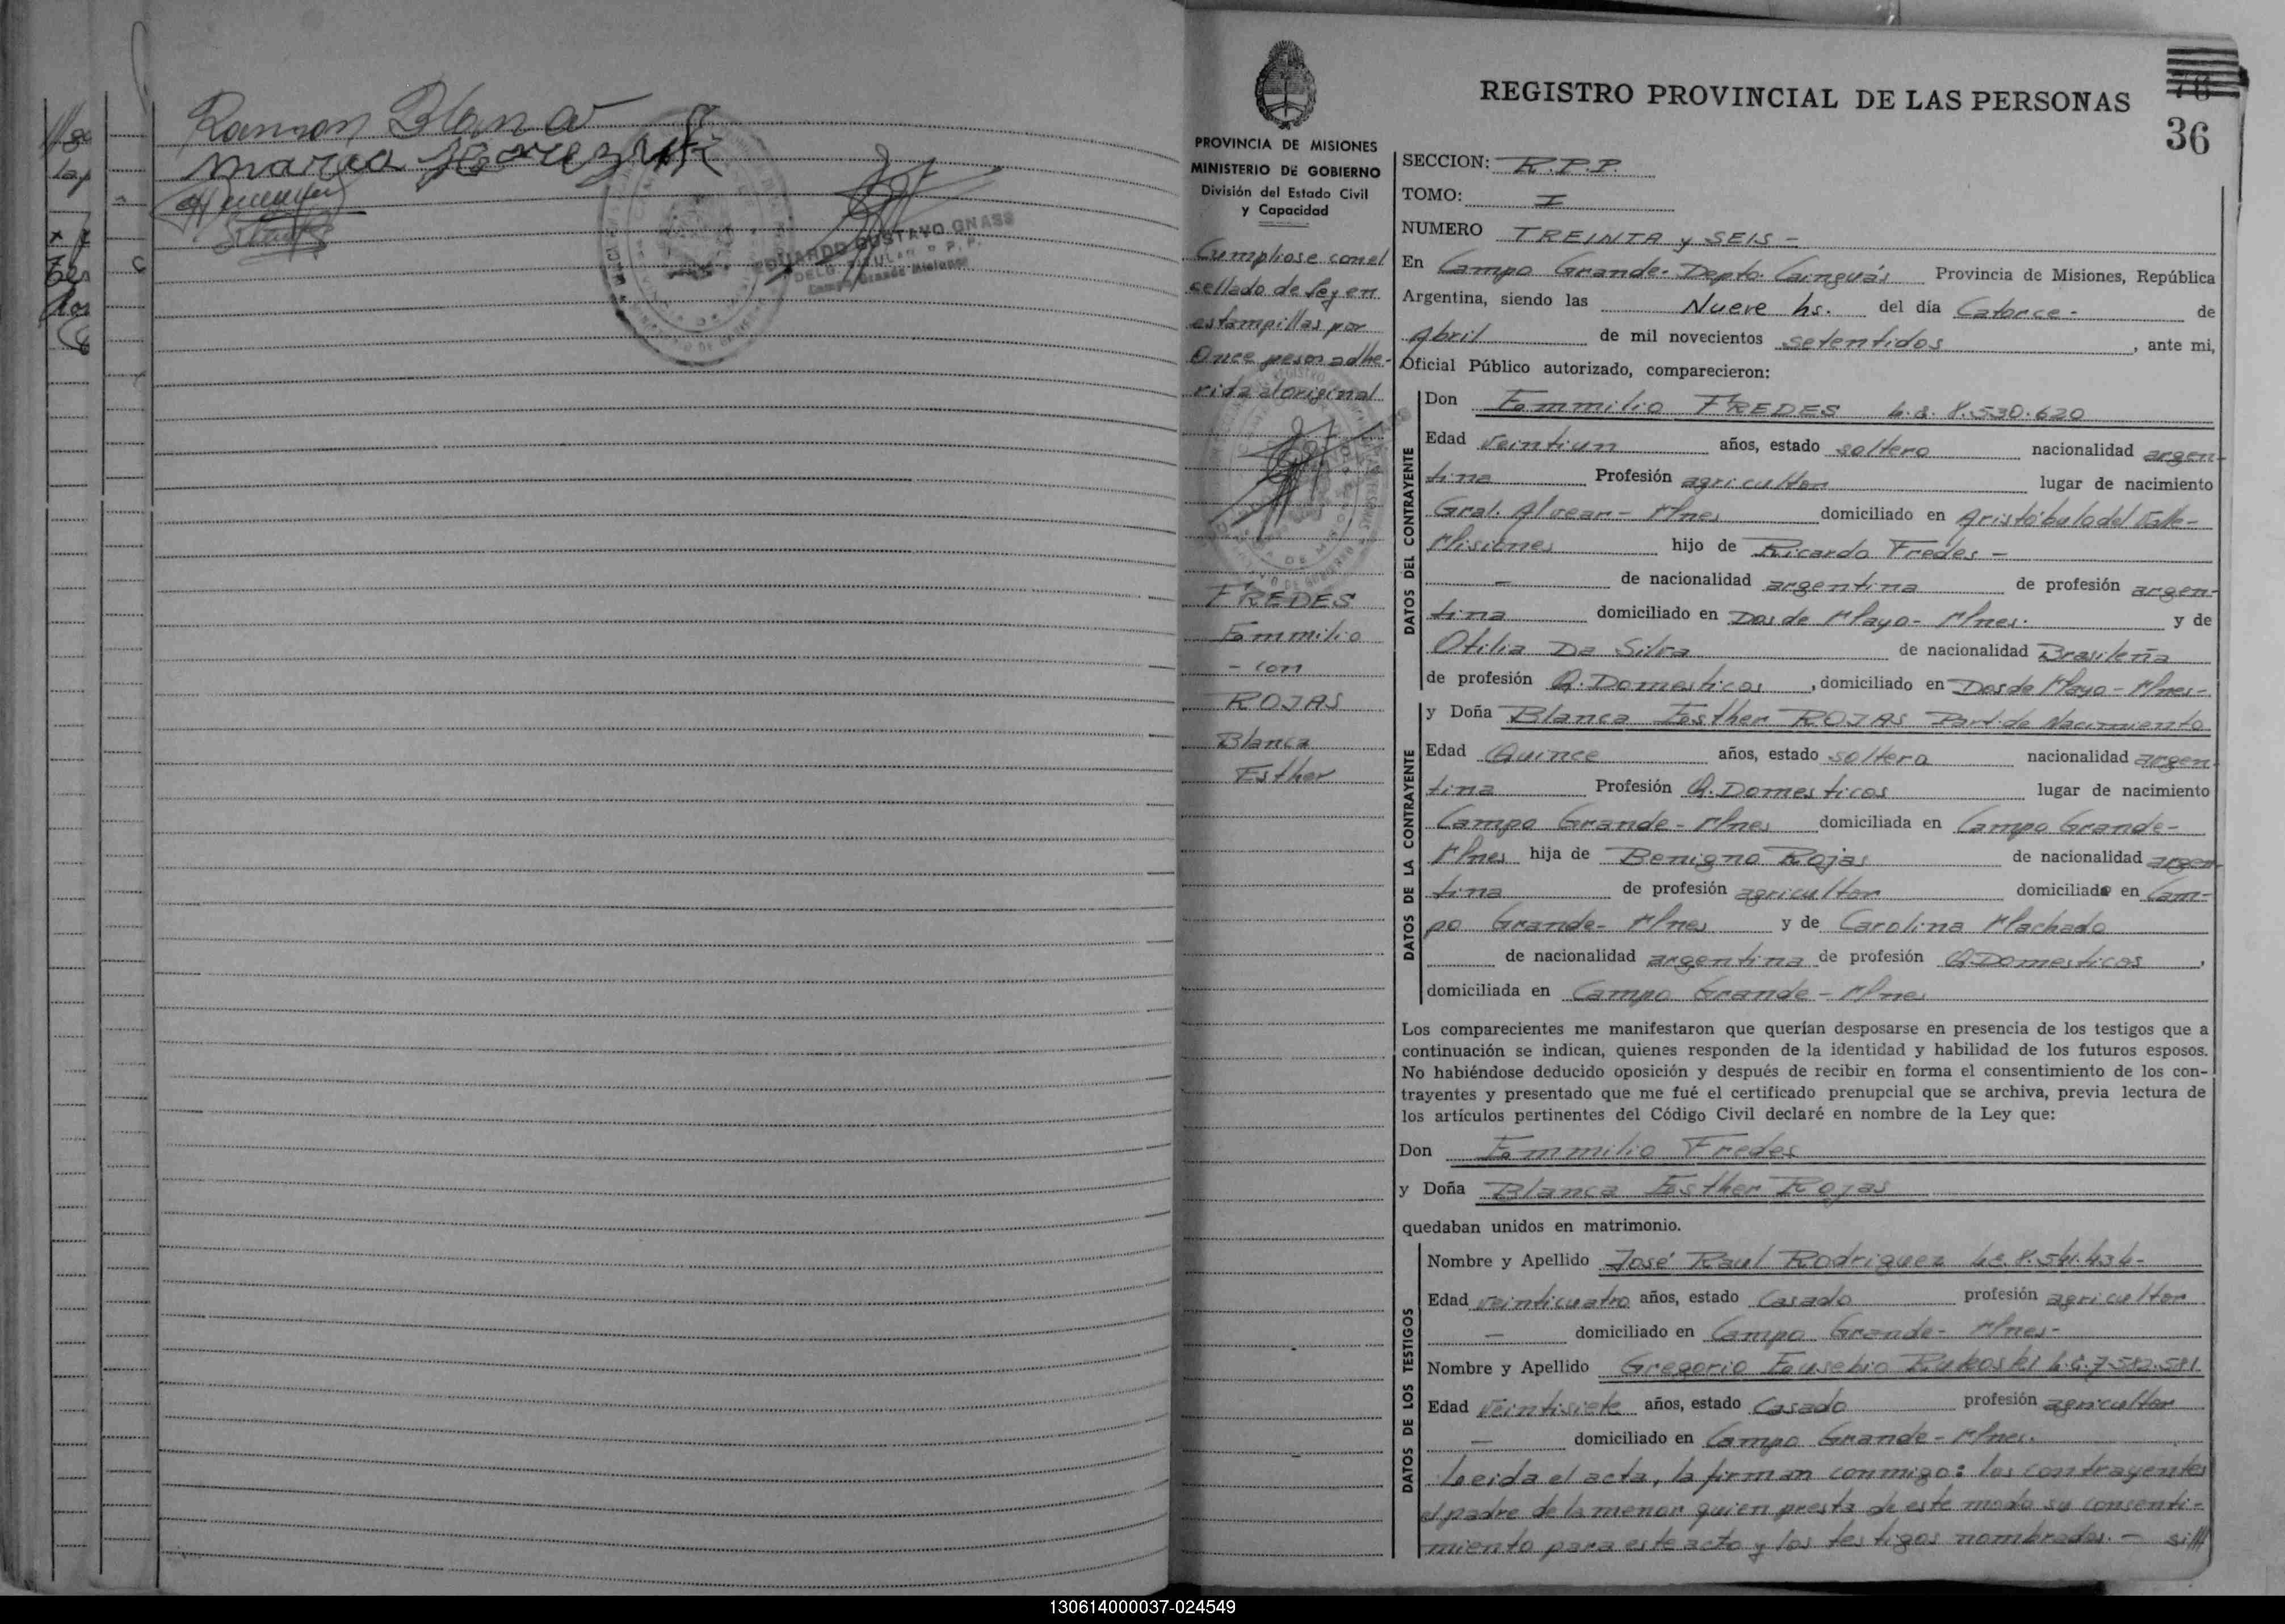 Ramon Blanco
maria
EDUARDO GUSTAVO GNASS
DELG. TITULAR R. P. P.
Campo Grande Misiones
76
36
REGISTRO PROVINCIAL DE LAS PERSONAS
PROVINCIA DE MISIONES
MINISTERIO DE GOBIERNO
División del Estado Civil
y Capacidad
Cumpliose con el
sellado de ley en
estampillas por
Once pesos adhe-
rida al original
FREDES
Emmilio
- con
ROJAS
Blanca
Esther
SECCION: R.P.P.
TOMO: I
NUMERO TREINTA y SEIS -
En Campo Grande- Depto. Cainguás Provincia de Misiones, República
Argentina, siendo las Nueve hs. del día Catorce - de
Abril de mil novecientos setentidos, ante mi,
Oficial Público autorizado, comparecieron:
DATOS DEL CONTRAYENTE
Don Emmilio FREDES L.E. 8.530.620
Edad veintiun años, estado soltero nacionalidad argen-
tina Profesión agricultor lugar de nacimiento
Gral. Alvear - Mnes domiciliado en Aristóbulo del Valle-
Misiones hijo de Ricardo Fredes -
- de nacionalidad argentina de profesión argen-
tina domiciliado en Dos de Mayo - Mnes. y de
Otilia Da Silva de nacionalidad Brasileña
de profesión Q. Domesticos, domiciliado en Dos de Mayo - Mnes-
DATOS DE LA CONTRAYENTE
y Doña Blanca Esther ROJAS Part. de Nacimiento
Edad Quince años, estado soltera nacionalidad argen
tina Profesión Q. Domesticos lugar de nacimiento
Campo Grande - Mnes domiciliada en Campo Grande-
Mnes hija de Benigno Rojas de nacionalidad argen
tina de profesión agricultor domiciliado en Cam-
po Grande- Mnes y de Carolina Machado
de nacionalidad argentina de profesión Q. Domesticos,
domiciliada en Campo Grande - Mnes
Los comparecientes me manifestaron que querían desposarse en presencia de los testigos que a
continuación se indican, quienes responden de la identidad y habilidad de los futuros esposos.
No habiéndose deducido oposición y después de recibir en forma el consentimiento de los con-
trayentes y presentado que me fué el certificado prenupcial que se archiva, previa lectura de
los artículos pertinentes del Código Civil declaré en nombre de la Ley que:
Don Emmilio Fredes
y Doña Blanca Esther Rojas
quedaban unidos en matrimonio.
DATOS DE LOS TESTIGOS
Nombre y Apellido José Raul Rodriguez L.E. 8.541.434-
Edad veinticuatro años, estado Casado profesión agricultor
- domiciliado en Campo Grande - Mnes-
Nombre y Apellido Gregorio Eusebio L.E. 7.582.581
Edad Veintisiete años, estado Casado profesión agricultor
- domiciliado en Campo Grande - Mnes.
Leida el acta, la firman conmigo: los contrayentes
el padre de la menor quien presta de este modo su consenti-
miento para este acto y los testigos nombrados. -
130614000037-024549